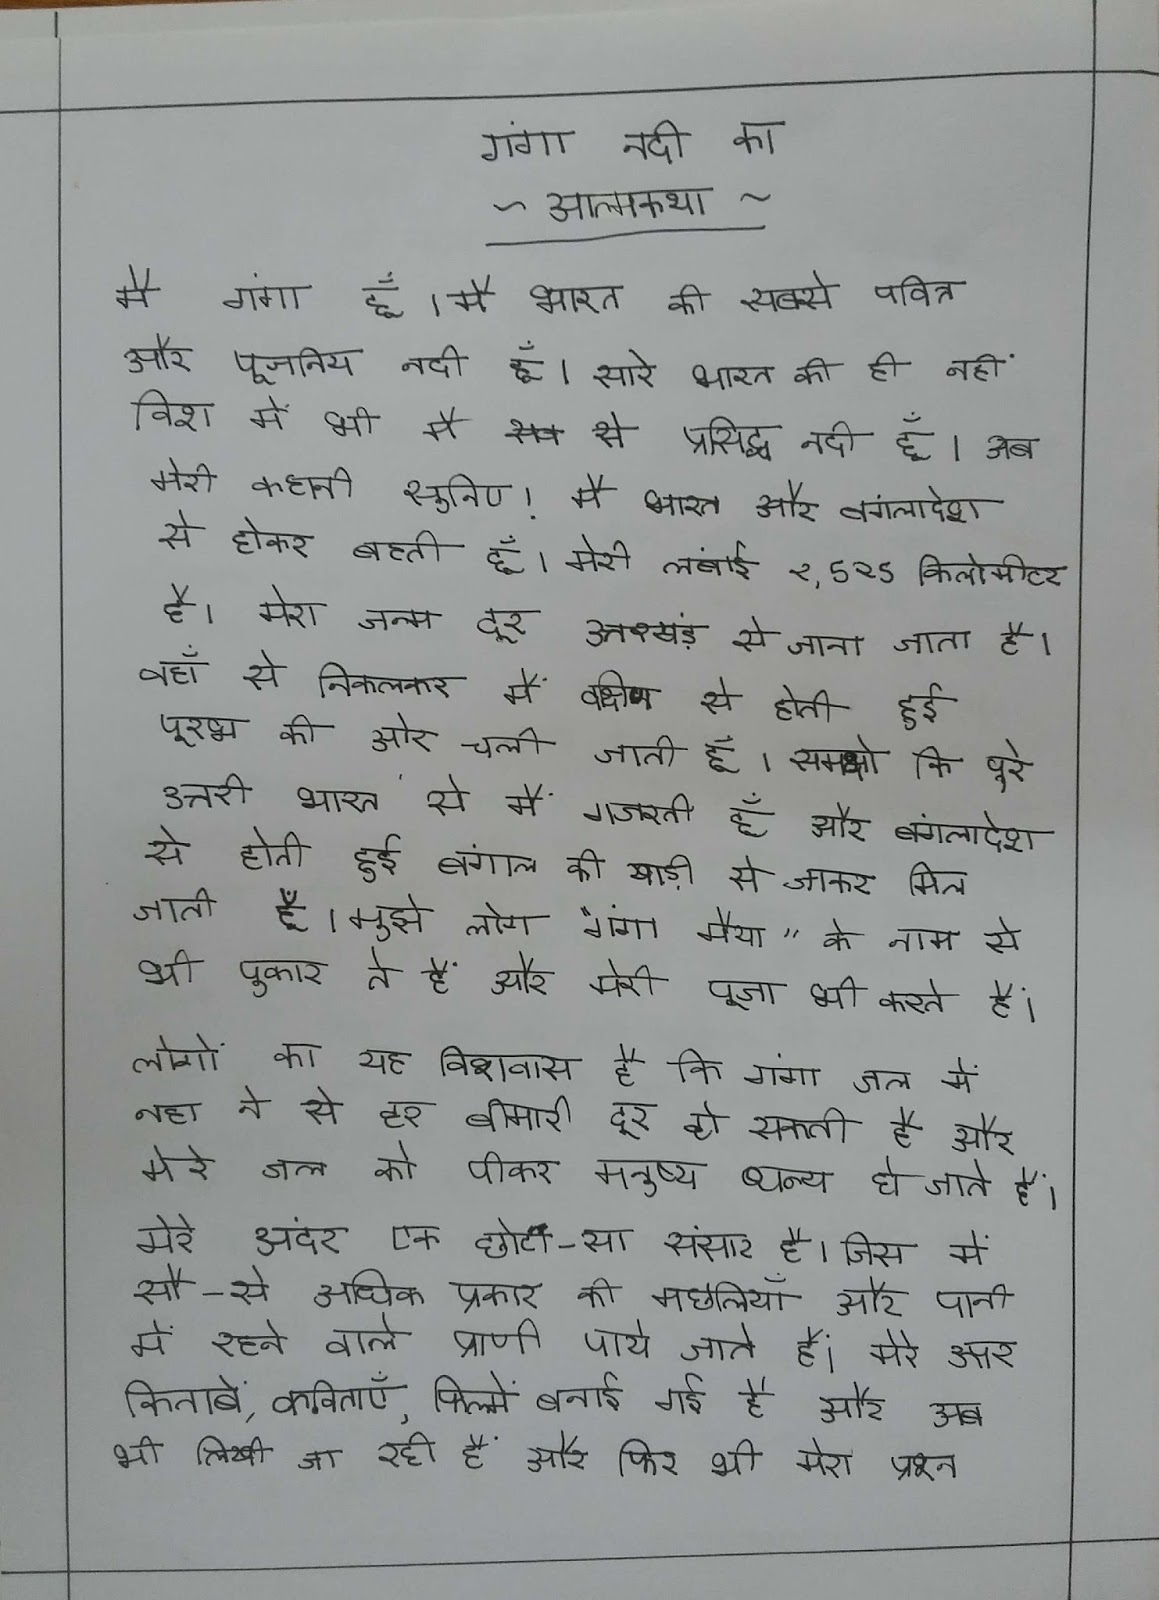 गंगा नदी का
~ आत्मकथा ~
मै गंगा हूँ । मै भारत की सबसे पवित्र
और पूजनिय नदी हूँ । सारे भारत की ही नहीं
विश में भी मै सब से प्रसिद्ध नदी हूँ । अब
मेरी कहानी सुनिए! मै भारत और बंगलादेश
से होकर बहती हूँ । मेरी लंबाई २,525 किलोमीटर
है। मेरा जन्म दूर से जाना जाता है।
वहाँ से निकलकर मैं से होती हुई
की ओर चली जाती हूँ । समझो कि पूरे
उत्तरी भारत से मैं गजरती हूँ और बंगलादेश
से होती हुई बंगाल की खाड़ी से जाकर मिल
जाती हूँ । मुझे लोग "गंगा मैया" के नाम से
भी पुकार ते हैं और मेरी पूजा भी करते हैं।
लोगों का यह विशवास है कि गंगा जल में
नहा ने से हर बीमारी दूर हो सकती है और
मेरे जल को पीकर मनुष्य धन्य हो जाते हैं।
मेरे अंदर एक छोटा-सा संसार है। जिस में
सौ-से अधिक प्रकार की मछलियाँ और पानी
में रहने वाले प्राणी पाये जाते हैं। मेरे
किताबें, कविताएँ, फिल्में बनाई गई है और अब
भी लिखी जा रही हैं और फिर भी मेरा प्रश्न